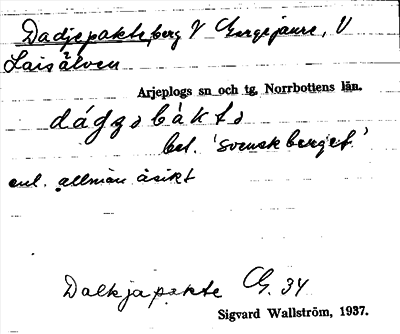 Dadjepakte, berg V Gargejaure, V
Laisälven
Arjeplogs sn och tg, Norrbottens län.
dágʒəbàktə
bet. 'svenskberget'
enl. allmän åsikt
Dalkjapakte G. 34
Sigvard Wallström, 1937.